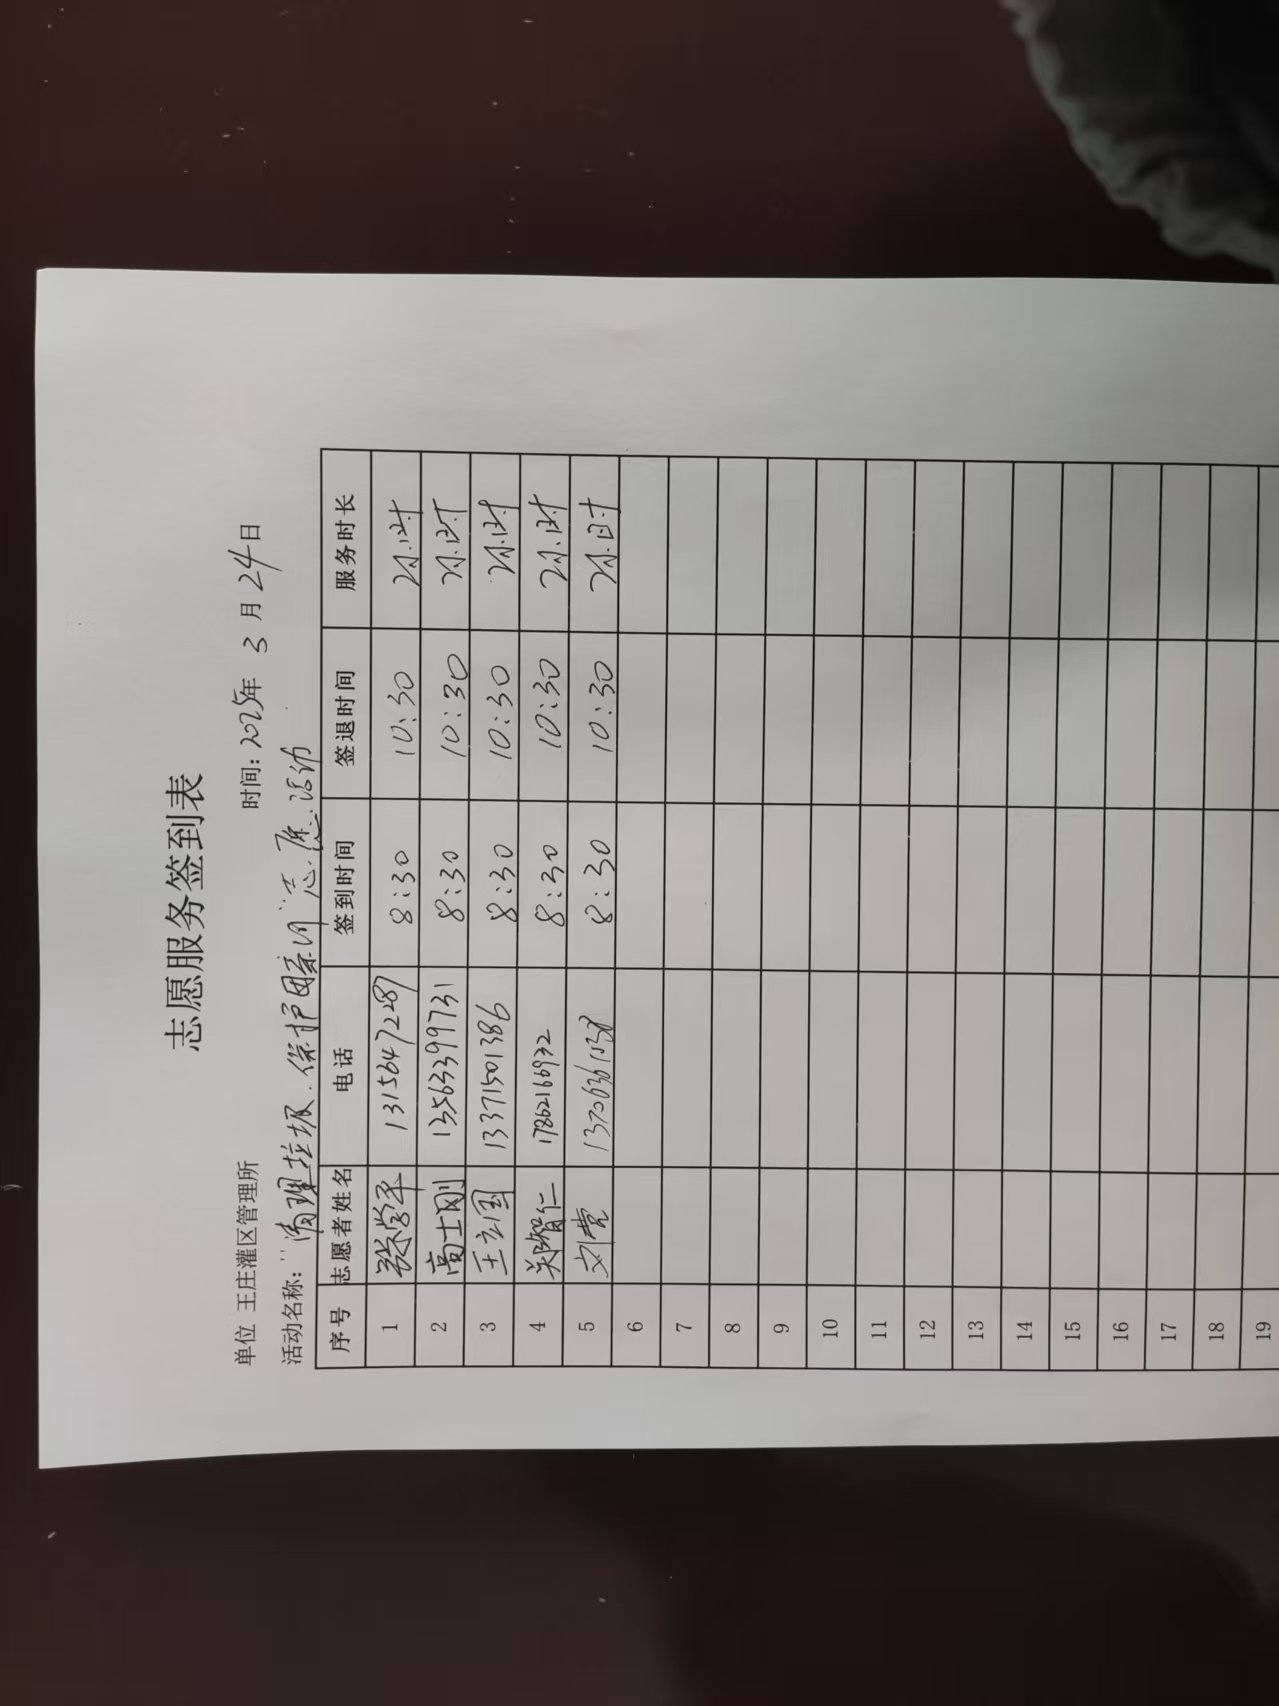 志愿服务签到表
单位 王庄灌区管理所 时间: 2025年 3 月 24日
活动名称: "清理垃圾.保护母亲河"志愿活动
序号 志愿者姓名 电话 签到时间 签退时间 服务时长
1 张学平 13156472287 8:30 10:30 2小时
2 高士刚 13563399731 8:30 10:30 2小时
3 王立国 13371501386 8:30 10:30 2小时
4 郑智仁 17862166932 8:30 10:30 2小时
5 8:30 10:30 2小时
6
7
8
9
10
11
12
13
14
15
16
17
18
19